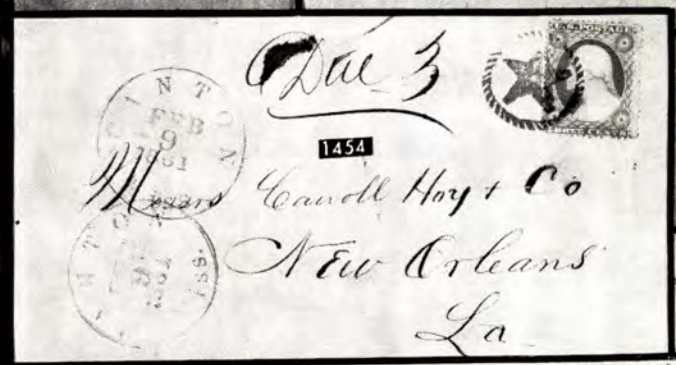 U.S. POSTAGE
Due 3
CANTON
FEB
9
1861
MISS.
1454
Messrs Carroll Hoy + Co
New Orleans
La